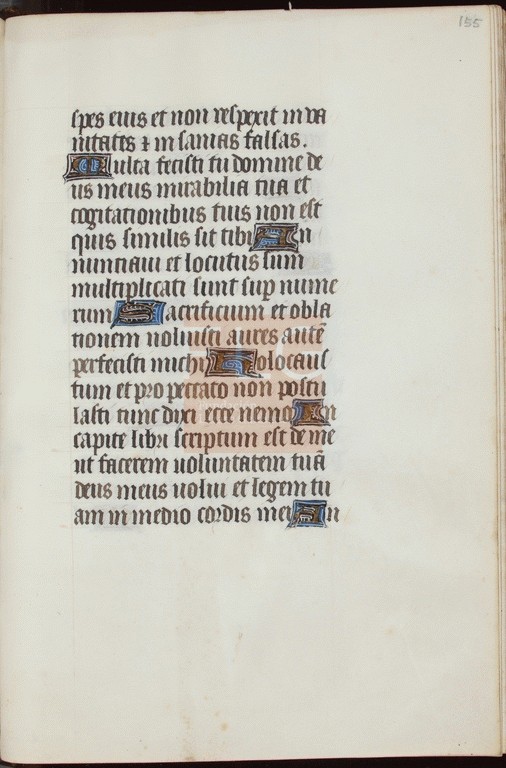 155
spes eius et non respexit in va
nitates ⁊ in sanias falsas.
Multa fecisti tu domine de
us meus mirabilia tua et
cogitationibus tuis non est
quis similis sit tibi An
nuntiaui et locutus sum
multiplicati sunt sup nume
rum Sacrificium et obla
tionem noluisti aures autē
perfecisti michi Holocaus
tum et pro peccato non postu
lasti tunc dixi ecce uenio In
capite libri scriptum est de me
ut facerem uoluntatem tuā
deus meus uolui et legem tu
am in medio cordis mei An